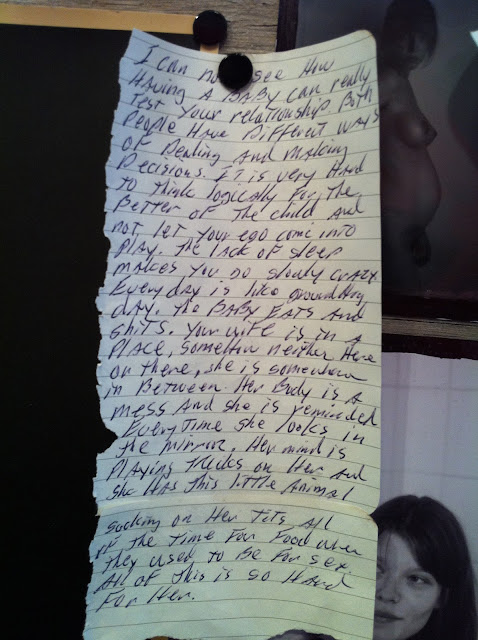 I can now see How
Having A BABY can really
Test your relationship Both
People Have Different ways
of Dealing And making
Decisions. IT is very Hard
to think logically For the
Better of the child and
not let your ego come into
Play. the lack of sleep
makes you go slowly crazy
Every day is like groundhog
day. the BABY EATS And
shits. Your wife is in a
Place, somehow neither Here
on there, she is somewhere
in Between. Her Body is a
mess And she is reminded
Everytime she looks in
the mirror. Her mind is
Playing tricks on Her And
she HAS this little Animal
Sucking on Her Tits All
of the time For Food when
they used to Be For sex
All of this is so Hard
For Her.